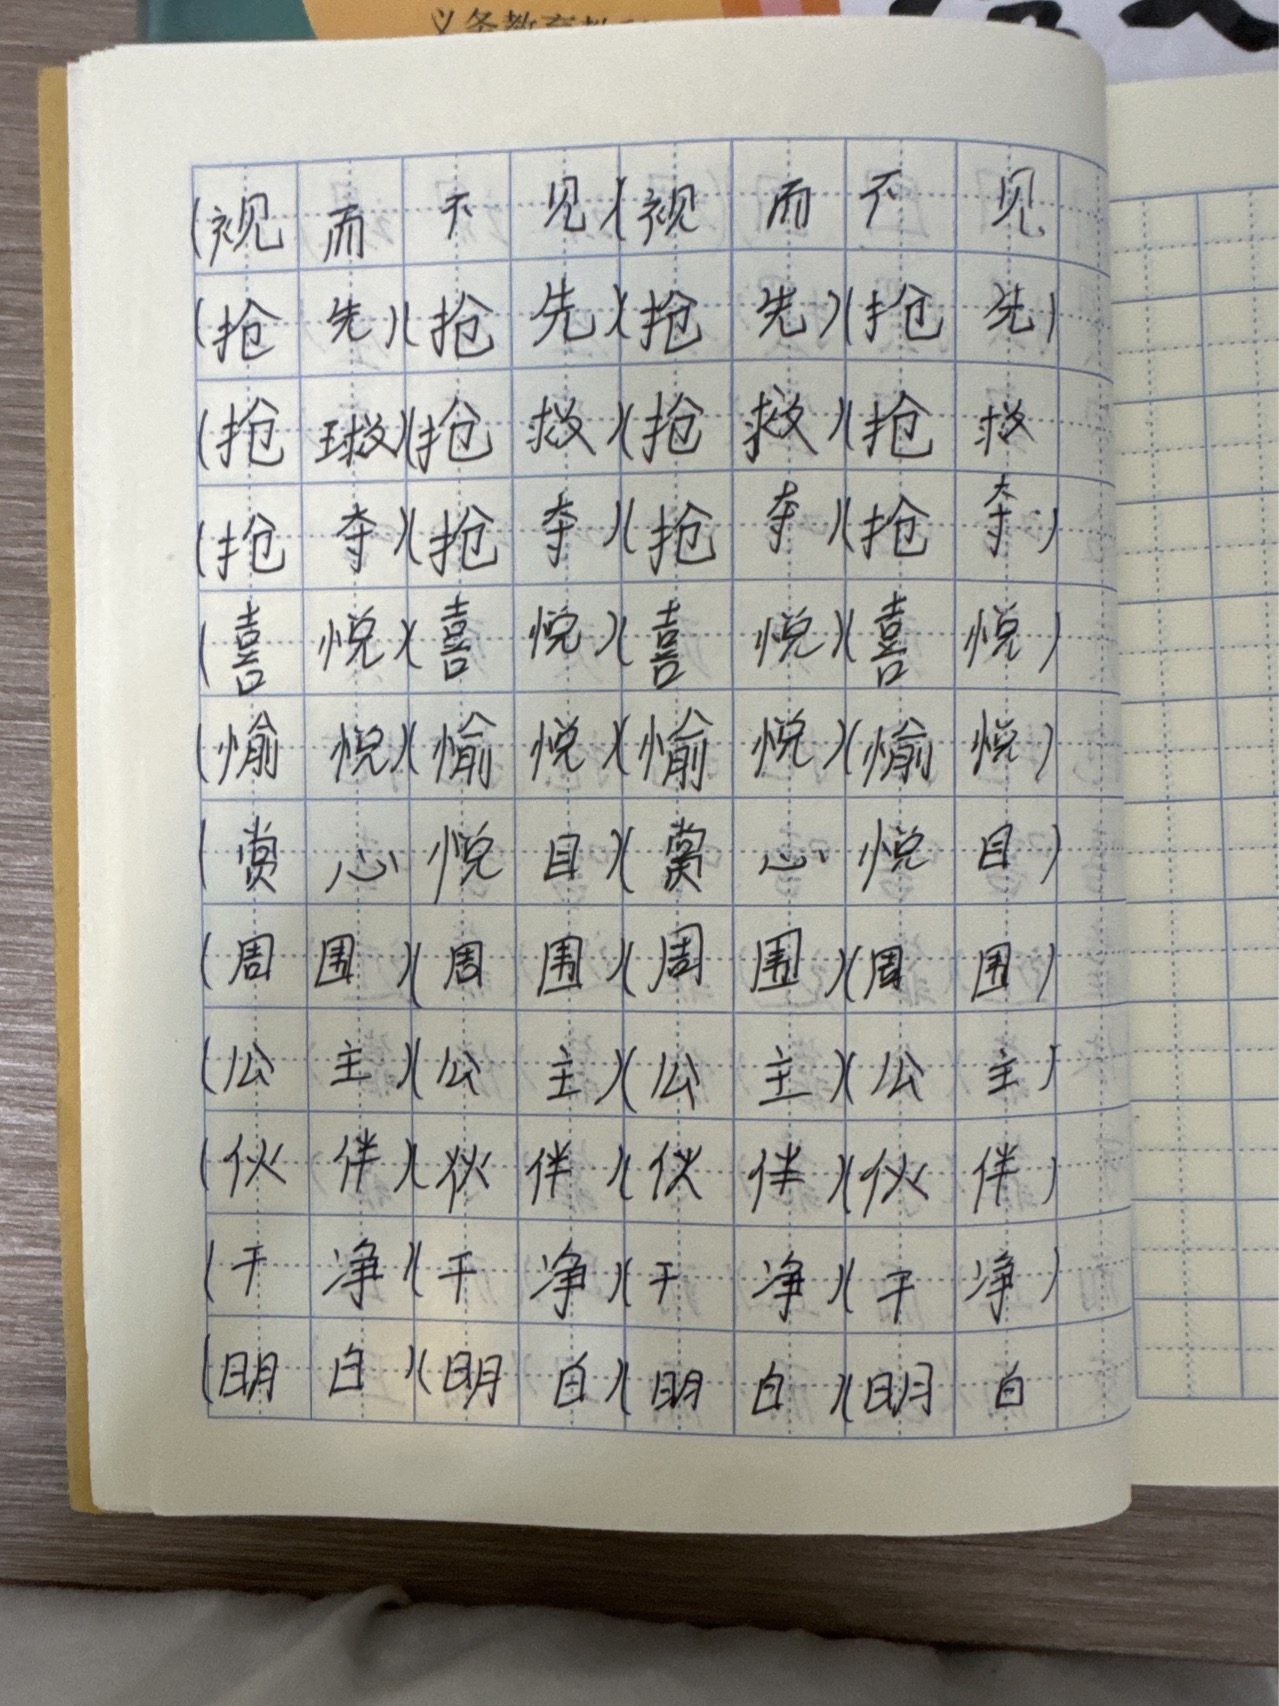 义务教育教
(视而不见)(视而不见
(抢先)(抢先)(抢先)(抢先)
(抢救)(抢救)(抢救)(抢救
(抢夺)(抢夺)(抢夺)(抢夺)
(喜悦)(喜悦)(喜悦)(喜悦)
(愉悦)(愉悦)(愉悦)(愉悦)
(赏心悦目)(赏心悦目)
(周围)(周围)(周围)(周围)
(公主)(公主)(公主)(公主)
(伙伴)(伙伴)(伙伴)(伙伴)
(干净)(干净)(干净)(干净)
(明白)(明白)(明白)(明白